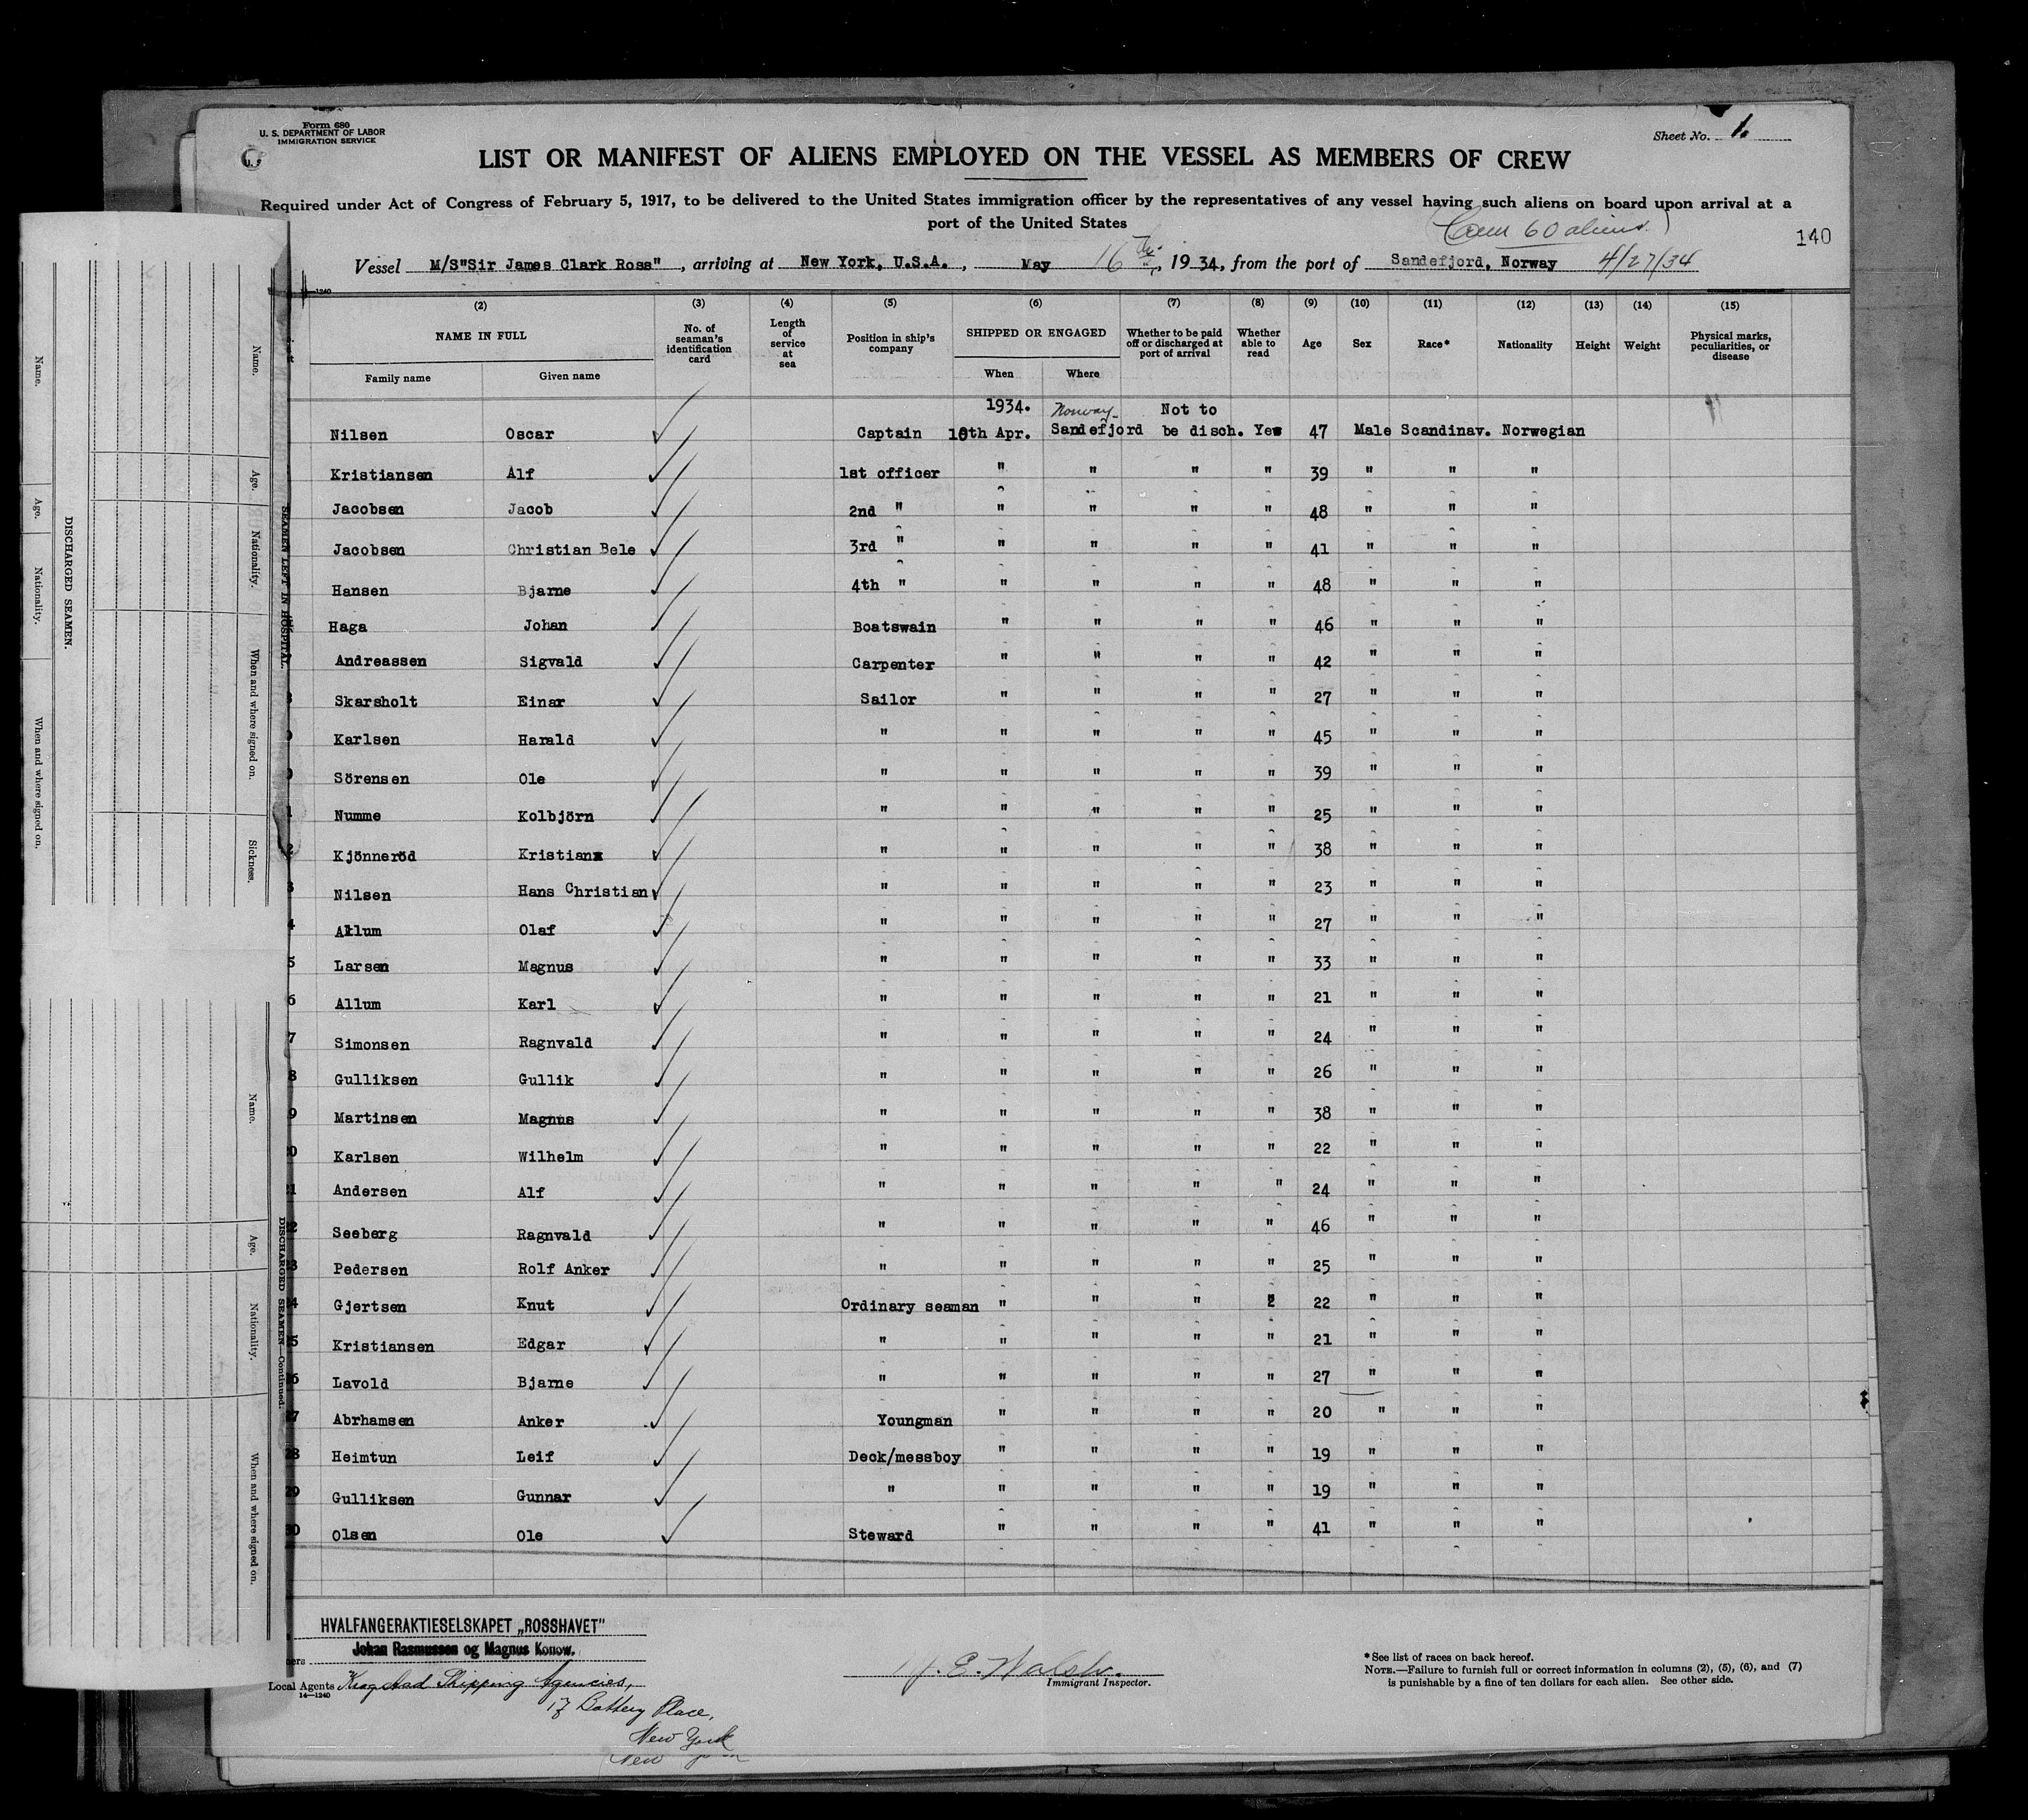 Form 680
U. S. DEPARTMENT OF LABOR
IMMIGRATION SERVICE
Sheet No. 1.
LIST OR MANIFEST OF ALIENS EMPLOYED ON THE VESSEL AS MEMBERS OF CREW
Required under Act of Congress of February 5, 1917, to be delivered to the United States immigration officer by the representatives of any vessel having such aliens on board upon arrival at a
port of the United States
60 aliens
140
Vessel M/S"Sir James Clark Ross", arriving at New York, U.S.A., May 16th, 1934, from the port of Sandefjord, Norway 4/27/34
14—1240
(2) (3) (4) (5) (6) (7) (8) (9) (10) (11) (12) (13) (14) (15)
NAME IN FULL
Family name Given name
No. of seaman's identification card
Length of service at sea
Position in ship's company
SHIPPED OR ENGAGED
When Where
Whether to be paid off or discharged at port of arrival
Whether able to read
Age
Sex
Race*
Nationality
Height
Weight
Physical marks, peculiarities, or disease
1934. Norway Not to
Nilsen Oscar Captain 10th Apr. Sandefjord be disch. Yes 47 Male Scandinav. Norwegian
Kristiansen Alf 1st officer " " " " 39 " " "
Jacobsen Jacob 2nd " " " " " 48 " " "
Jacobsen Christian Bele 3rd " " " " " 41 " " "
Hansen Bjarne 4th " " " " " 48 " " "
Haga Johan Boatswain " " " " 46 " " "
Andreassen Sigvald Carpenter " " " " 42 " " "
8 Skarsholt Einar Sailor " " " " 27 " " "
9 Karlsen Harald " " " " " 45 " " "
0 Sörensen Ole " " " " " 39 " " "
1 Numme Kolbjörn " " " " " 25 " " "
2 Kjönneröd Kristian " " " " " 38 " " "
3 Nilsen Hans Christian " " " " " 23 " " "
4 Allum Olaf " " " " " 27 " " "
5 Larsen Magnus " " " " " 33 " " "
6 Allum Karl " " " " " 21 " " "
7 Simonsen Ragnvald " " " " " 24 " " "
8 Gulliksen Gullik " " " " " 26 " " "
9 Martinsen Magnus " " " " " 38 " " "
20 Karlsen Wilhelm " " " " " 22 " " "
21 Andersen Alf " " " " " 24 " " "
22 Seeberg Ragnvald " " " " " 46 " " "
23 Pedersen Rolf Anker " " " " " 25 " " "
24 Gjertsen Knut Ordinary seaman " " " " 22 " " "
25 Kristiansen Edgar " " " " " 21 " " "
26 Lavold Bjarne " " " " " 27 " " "
27 Abrhamsen Anker Youngman " " " " 20 " " "
28 Heimtun Leif Deck/messboy " " " " 19 " " "
29 Gulliksen Gunnar " " " " " 19 " " "
30 Olsen Ole Steward " " " " 41 " " "
HVALFANGERAKTIESELSKAPET „ROSSHAVET"
Johan Rasmussen og Magnus Konow.
Local Agents Krogstad Shipping Agencies,
14—1240
17 Battery Place,
New York
New
E. Walsh.
Immigrant Inspector.
*See list of races on back hereof.
NOTE.—Failure to furnish full or correct information in columns (2), (5), (6), and (7)
is punishable by a fine of ten dollars for each alien. See other side.
Name.
Age.
Nationality.
When and where signed on.
DISCHARGED SEAMEN.
Name.
Age.
Nationality.
When and where signed on.
Sickness.
SEAMEN LEFT IN HOSPITAL.
Name.
Age.
Nationality.
When and where signed on.
DISCHARGED SEAMEN—Continued.